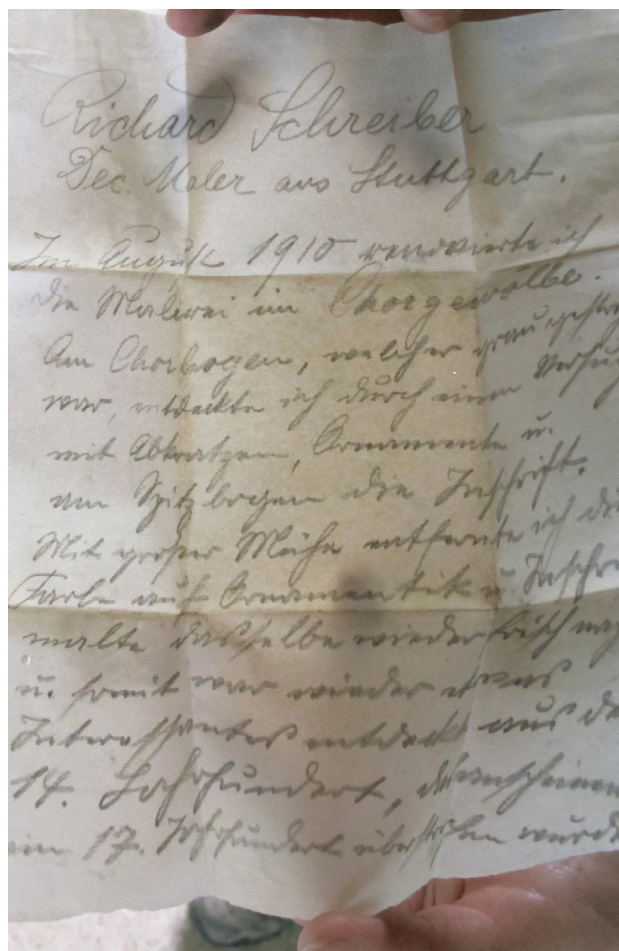 Richard Schreiber
Dec. Maler aus Stuttgart.
Im August 1910 renovierte ich
die Malerei im Chorgewölbe.
Am Chorbogen, welcher grau gestri
war, entdeckte ich durch einen Versuch
mit Abkratzen, Ornamente u.
am Spitzbogen die Inschrift.
Mit großer Mühe entfernte ich die
Farbe auf Ornamentik u. Inschri
malte dasselbe wieder frisch nach
u. somit war wieder etwas
Interessantes entdeckt aus de
14. Jahrhundert, anscheinen
im 17. Jahrhundert überstrichen wurde